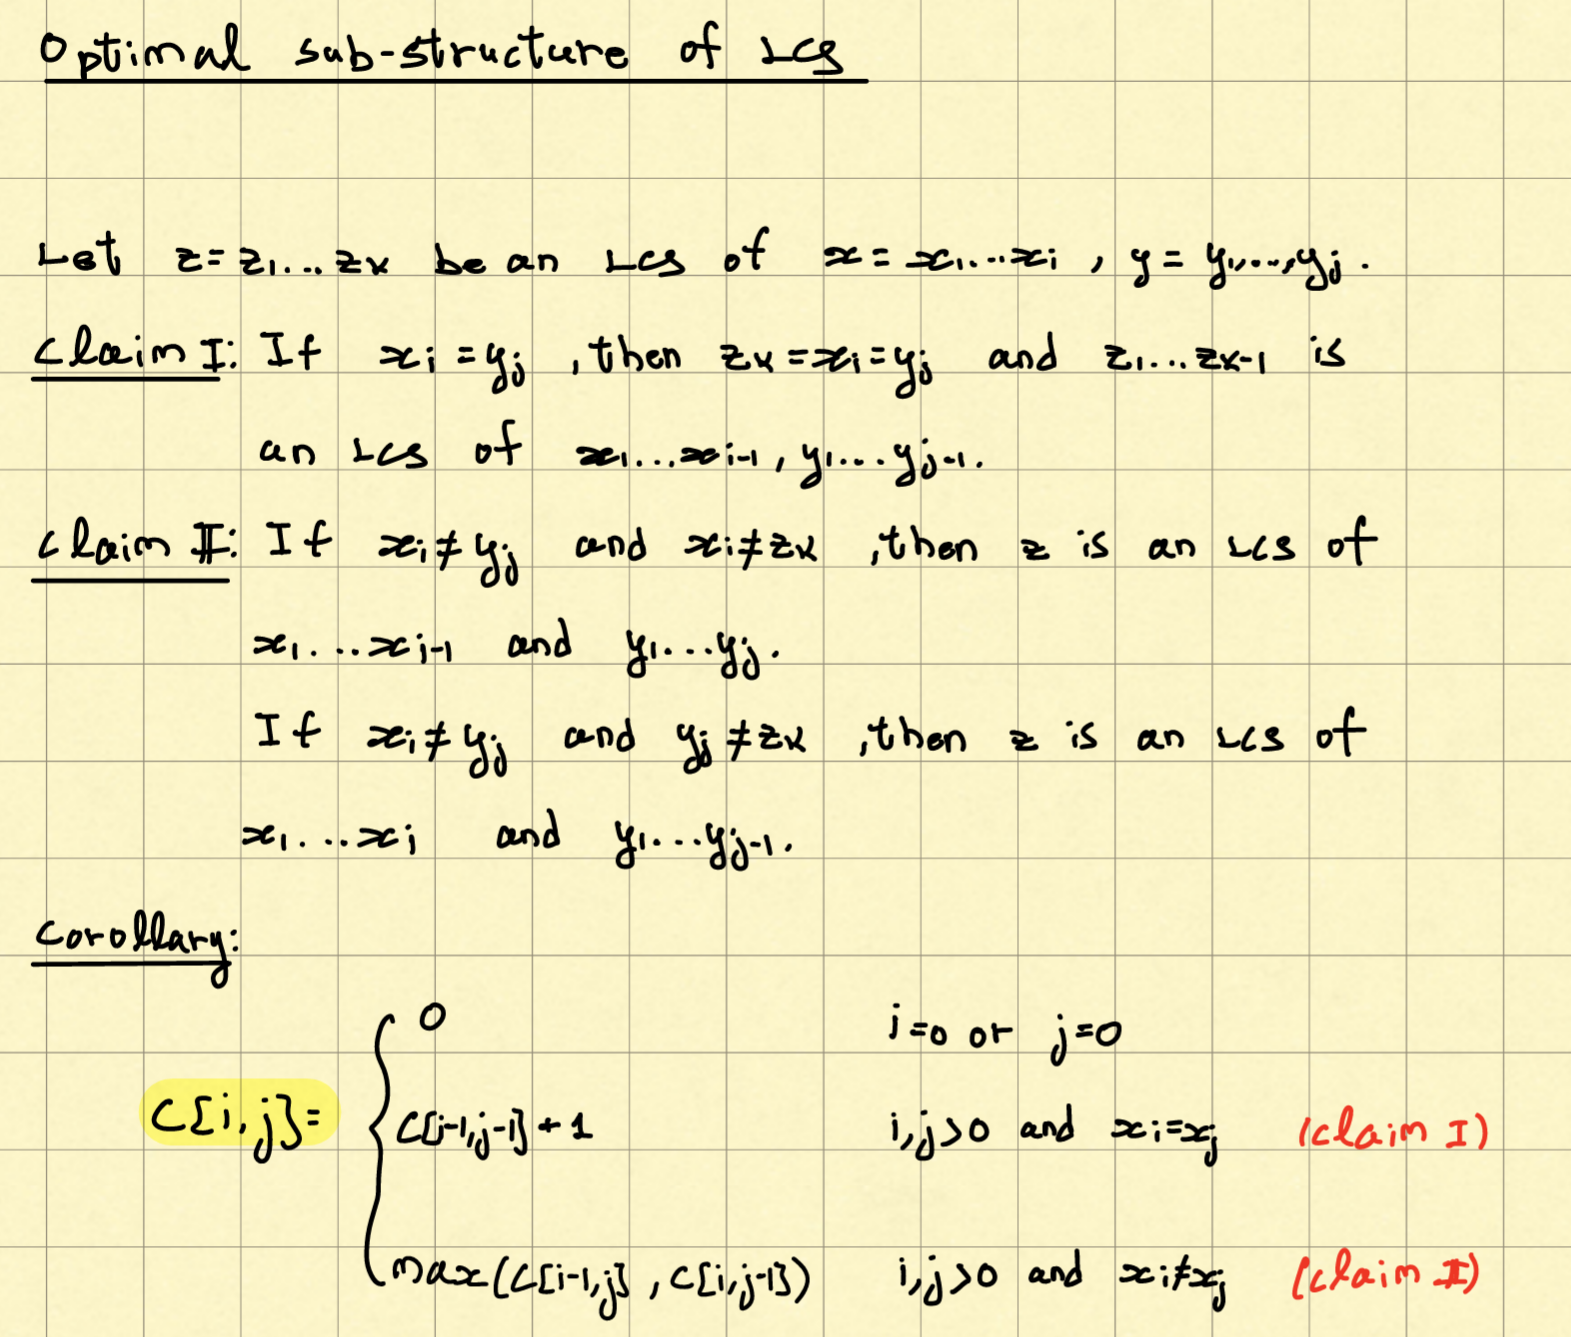 Optimal sub-structure of LCS
Let z = z₁...zₖ be an LCS of x = x₁...xᵢ , y = y₁,...,yⱼ .
Claim I: If xᵢ = yⱼ , then zₖ = xᵢ = yⱼ and z₁...zₖ₋₁ is
an LCS of x₁...xᵢ₋₁ , y₁...yⱼ₋₁.
Claim II: If xᵢ ≠ yⱼ and xᵢ ≠ zₖ , then z is an LCS of
x₁...xᵢ₋₁ and y₁...yⱼ.
If xᵢ ≠ yⱼ and yⱼ ≠ zₖ , then z is an LCS of
x₁...xᵢ and y₁...yⱼ₋₁.
Corollary:
0 i=0 or j=0
C[i,j] = { C[i-1,j-1] + 1 i,j>0 and xᵢ=xⱼ (Claim I)
max(C[i-1,j] , C[i,j-1]) i,j>0 and xᵢ≠xⱼ (Claim II)